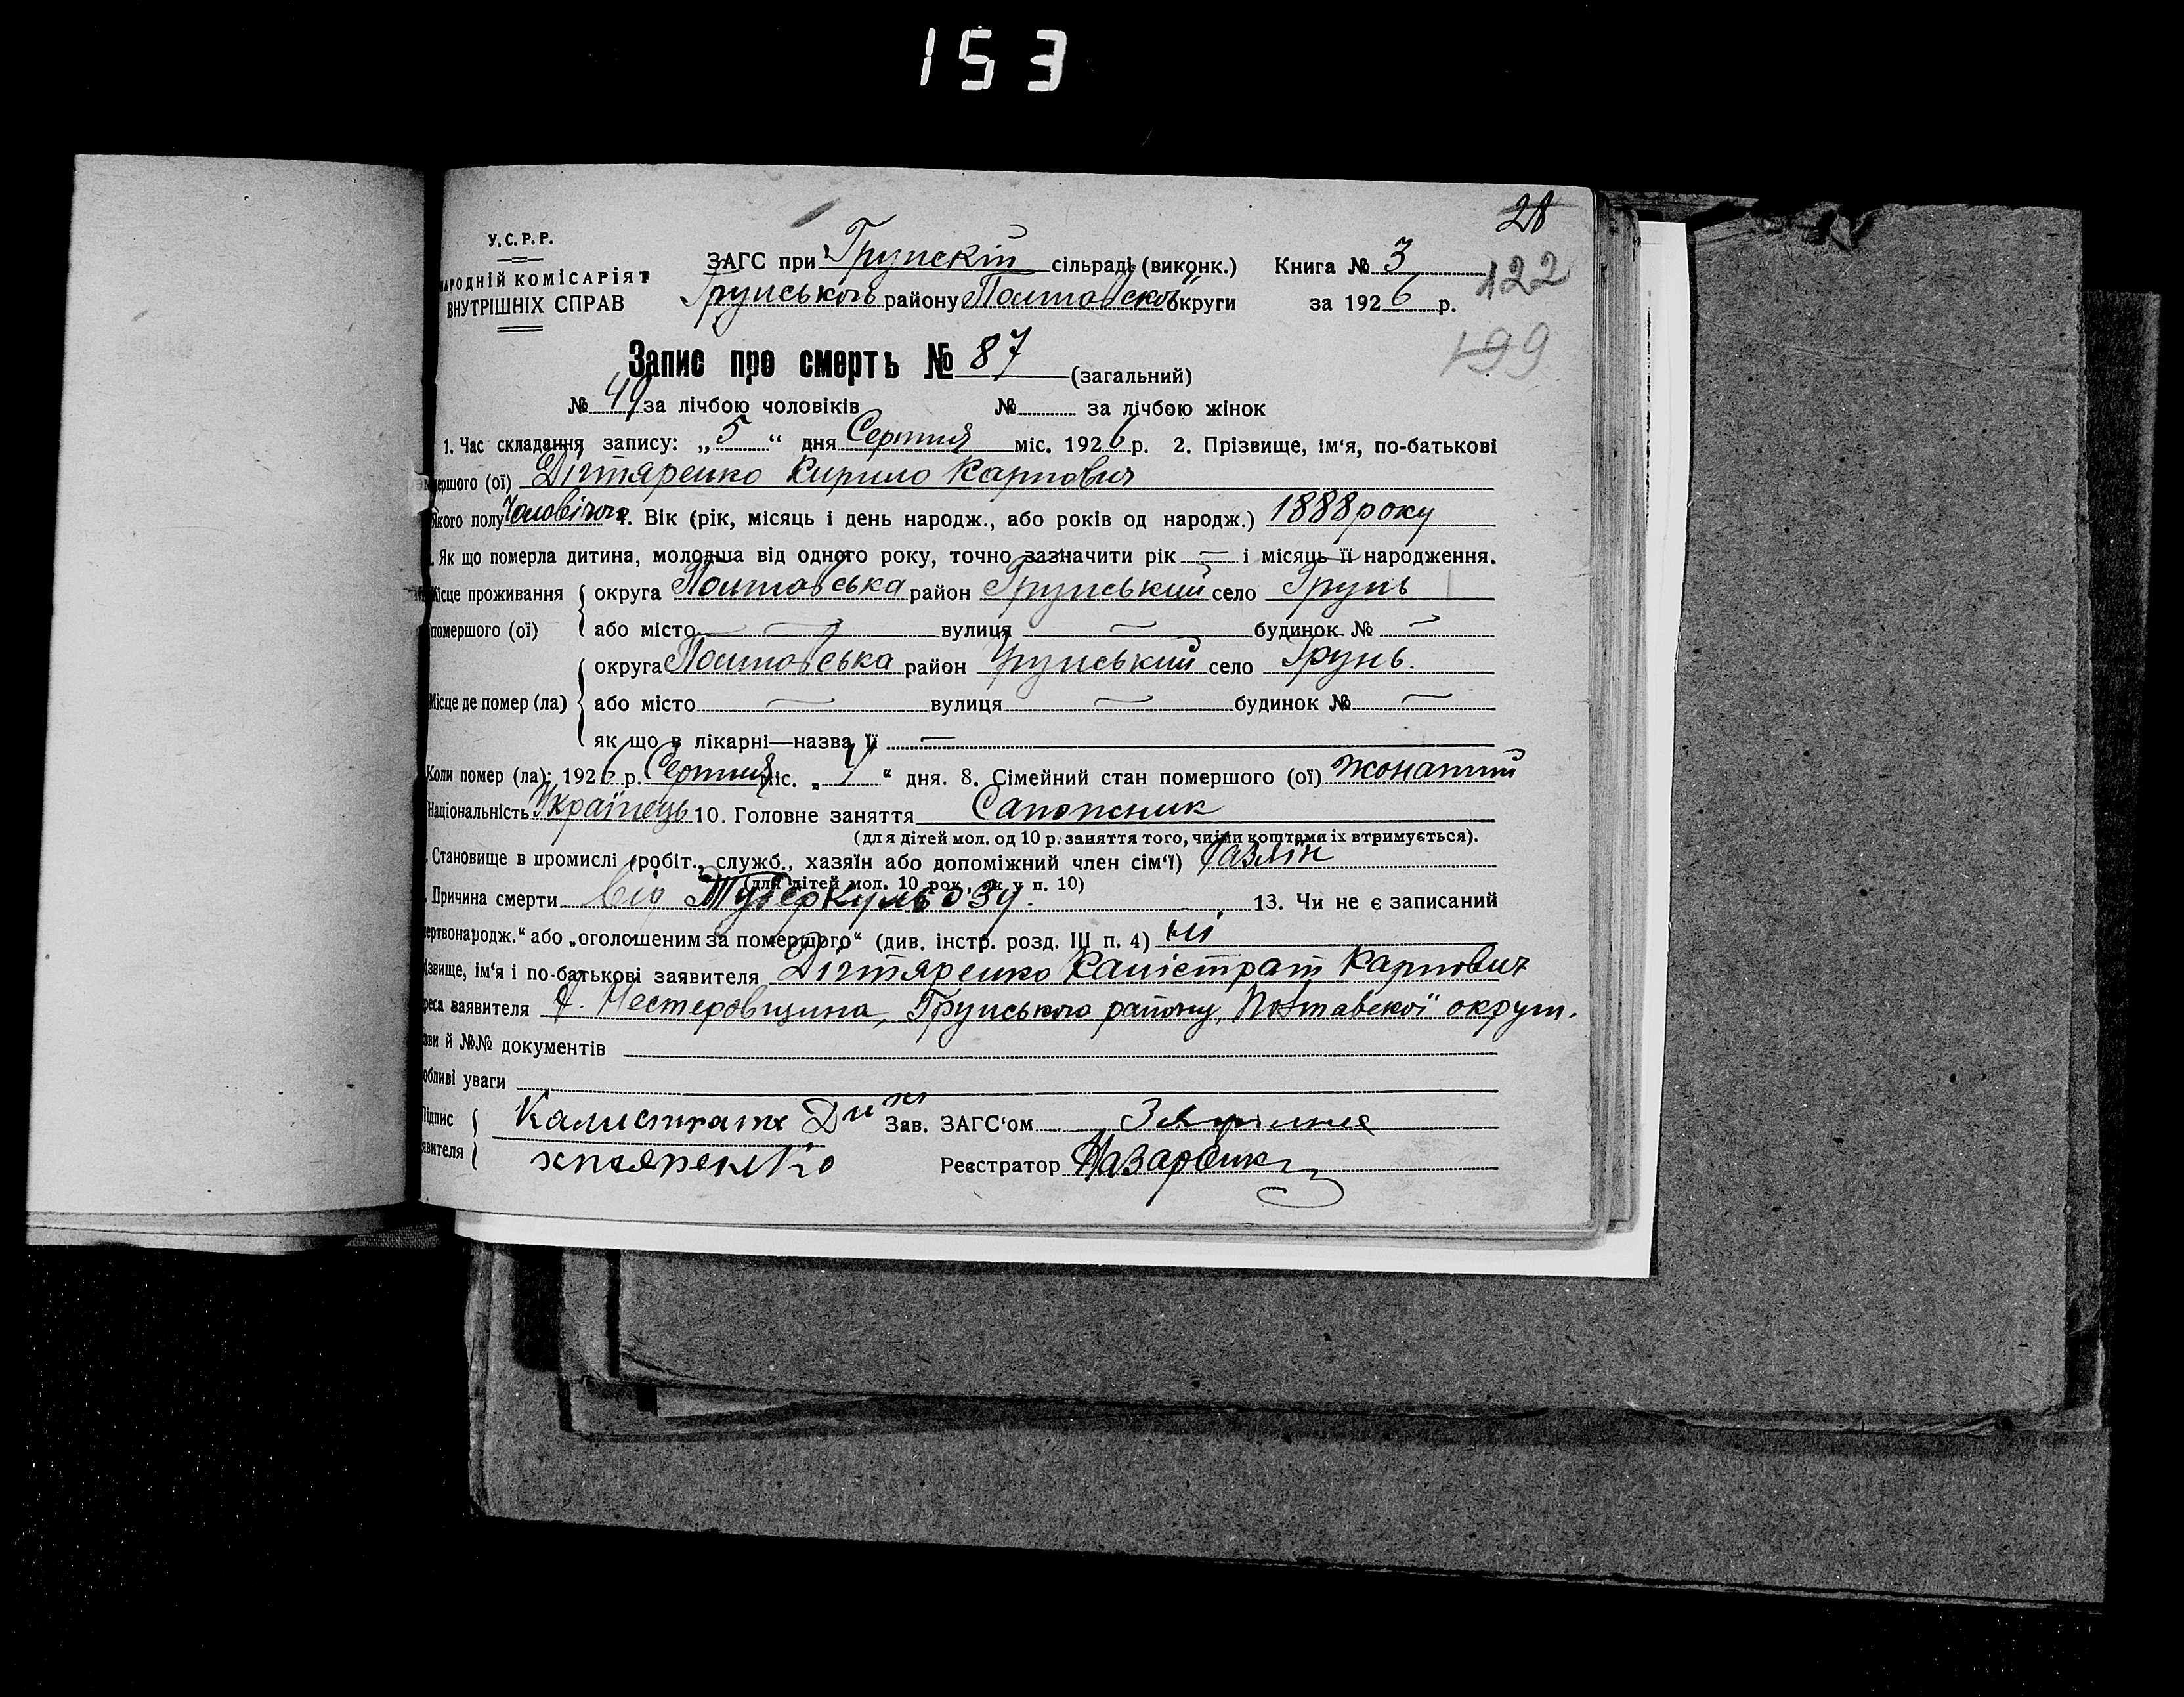 153
28
У.С.Р.Р.
ЗАГС при Грунскій сільраді (виконк.) Книга № 3
122
НАРОДНІЙ КОМІСАРІЯТ
ВНУТРІШНІХ СПРАВ
Грунського району Полтавської округи за 1926 р.
199
Запис про смерть № 87 (загальний)
№ 49 за лічбою чоловіків № за лічбою жінок
1. Час складання запису: „5“ дня Серпня міс. 1926 р. 2. Прізвище, ім‘я, по-батькові
мершого (ої) Дігтяренко Кирило Карпович
якого полу Чоловічого 4. Вік (рік, місяць і день народж., або років од народж.) 1888 року
. Як що померла дитина, молодша від одного року, точно зазначити рік — і місяць її народження.
Місце проживання округа Полтавська район Грунський село Грунь
помершого (ої) або місто — вулиця — будинок № —
округа Полтавська район Грунський село Грунь.
Місце де помер (ла) або місто — вулиця — будинок № —
як що в лікарні—назва її —
Коли помер (ла): 1926 р. Серпня міс. „4“ дня. 8. Сімейний стан помершого (ої) жонатий
Національність Українець 10. Головне заняття Сапожник
(для дітей мол. од 10 р. заняття того, чиїми коштами їх втримується).
. Становище в промислі (робіт., служб., хазяїн або допоміжний член сім‘ї) Хазяїн
(для дітей мол. 10 рок., як у п. 10)
. Причина смерти від Туберкульозу. 13. Чи не є записаний
мертвонародж.“ або „оголошеним за помершого“ (див. інстр. розд. III п. 4) ні
ізвище, ім‘я і по-батькові заявителя Дігтяренко Калістрат Карпович
реса заявителя х. Нестеровщина, Грунського району, Полтавської округи.
зви й №№ документів
обливі уваги
Підпис Калистрат Ди Зав. ЗАГС‘ом
явителя хтяренко Реєстратор Назаренк